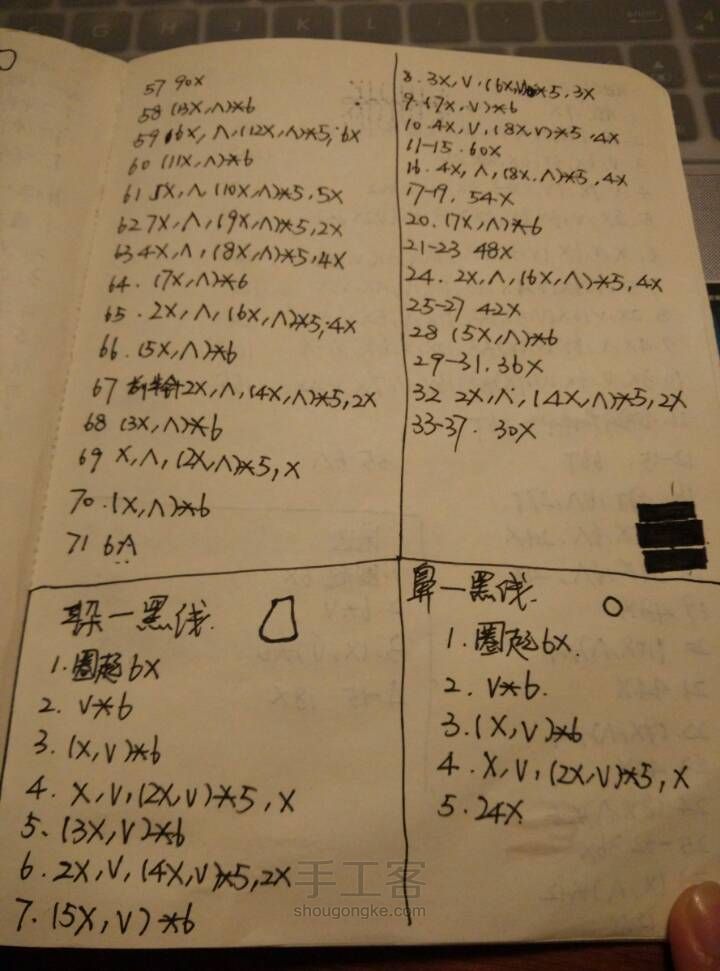 57 90X
58 (13X,Λ)*6
59 6X,Λ,(12X,Λ)*5,6X
60 (11X,Λ)*6
61 5X,Λ,(10X,Λ)*5,5X
62 7X,Λ,(9X,Λ)*5,2X
63 4X,Λ,(8X,Λ)*5,4X
64. (7X,Λ)*6
65. 2X,Λ,(6X,Λ)*5,4X
66. (5X,Λ)*6
67 2X,Λ,(4X,Λ)*5,2X
68 (3X,Λ)*6
69 X,Λ,(2X,Λ)*5,X
70. (X,Λ)*6
71 6A
8. 3X,V,(6X,V)*5,3X
9. (7X,V)*6
10. 4X,V,(8X,V)*5,4X
11-15. 60X
16. 4X,Λ,(8X,Λ)*5,4X
17-19. 54X
20. (7X,Λ)*6
21-23 48X
24. 2X,Λ,(6X,Λ)*5,4X
25-27 42X
28 (5X,Λ)*6
29-31. 36X
32 2X,Λ,(4X,Λ)*5,2X
33-37. 30X
一黑线.
1.圈起6X
2. V*6
3. (X,V)*6
4. X,V,(2X,V)*5,X
5. (3X,V)*6
6. 2X,V,(4X,V)*5,2X
7. (5X,V)*6
鼻一黑线.
1.圈起6X.
2. V*6.
3. (X,V)*6
4. X,V,(2X,V)*5,X
5. 24X
手工客
shougongke.com